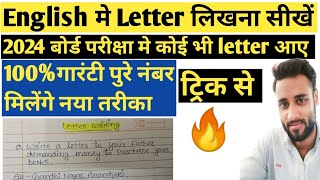 English मे Letter लिखना सीखें
2024 बोर्ड परीक्षा मे कोई भी letter आए
100%गारंटी पुरे नंबर
मिलेंगे नया तरीका
ट्रिक से
Letter writing
Q Write a letter to your father
demanding money to purchase your
books.
Gandhi Nagar,